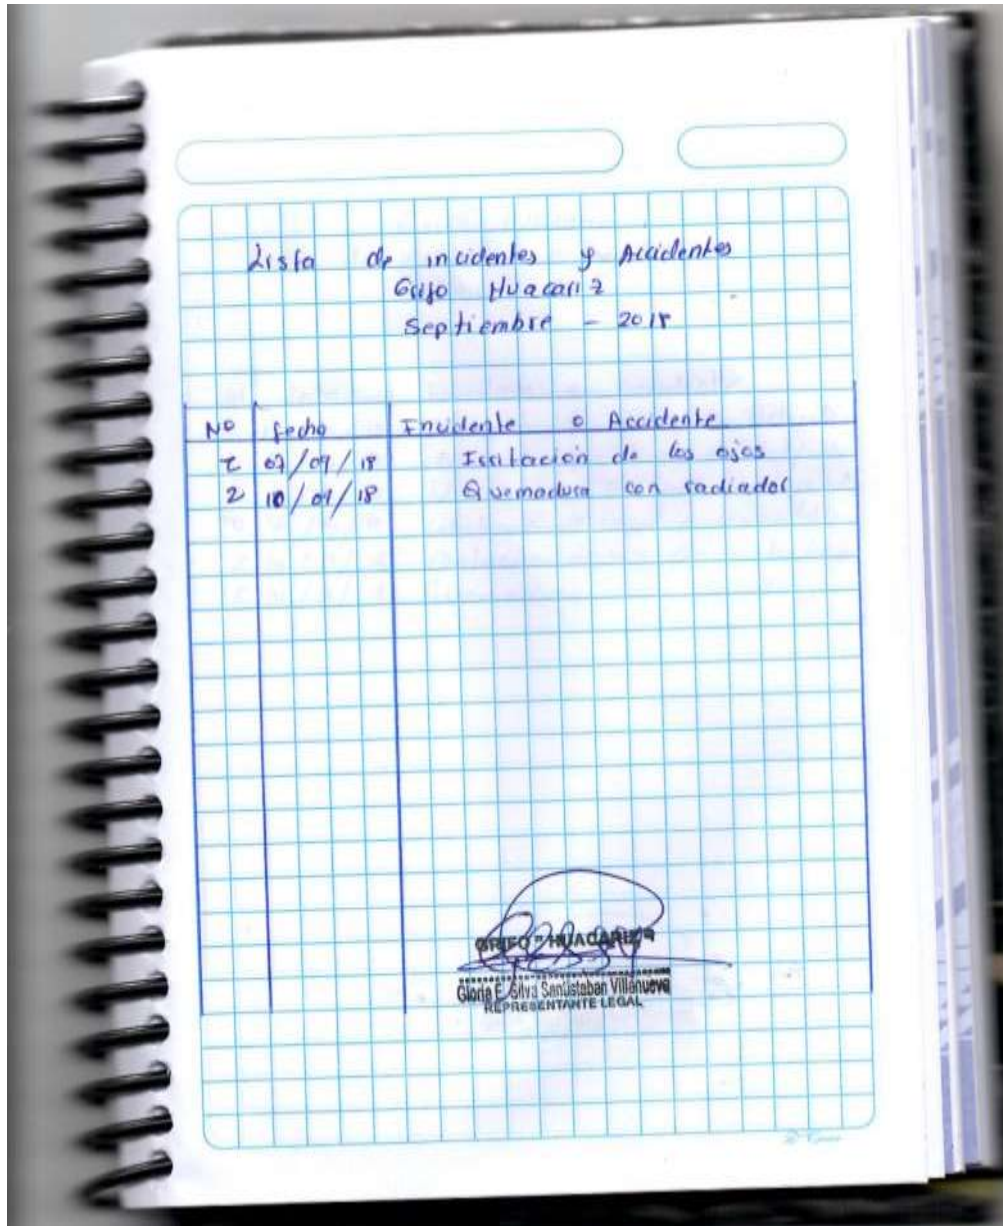 Lista de incidentes y Accidentes
Grifo Huacariz
Septiembre - 2018
Nº fecha Incidente o Accidente
1 07/09/18 Irritación de los ojos
2 10/09/18 Quemadura con radiador
GRIFO "HUACARIZ"
Gloria E. Silva Santisteban Villanueva
REPRESENTANTE LEGAL